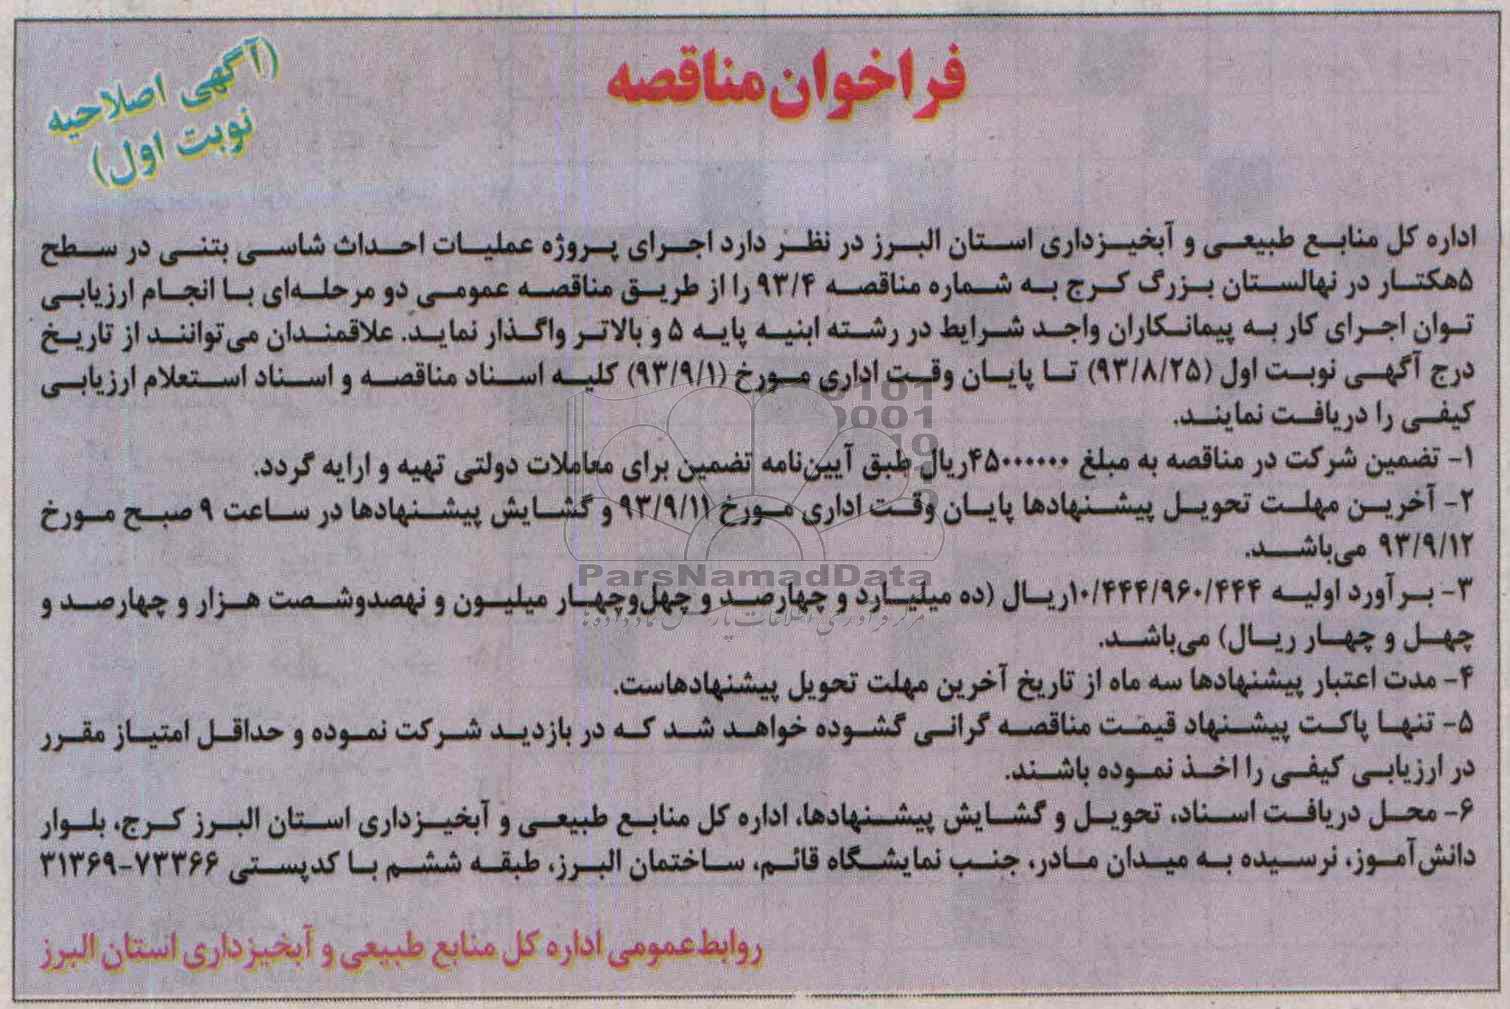 فراخوان مناقصه
(آگهی اصلاحیه
نوبت اول)
اداره کل منابع طبیعی و آبخیزداری استان البرز در نظر دارد اجرای پروژه عملیات احداث شاسی بتنی در سطح
۵هکتار در نهالستان بزرگ کرج به شماره مناقصه ۹۳/۴ را از طریق مناقصه عمومی دو مرحله‌ای با انجام ارزیابی
توان اجرای کار به پیمانکاران واجد شرایط در رشته ابنیه پایه ۵ و بالاتر واگذار نماید. علاقمندان می‌توانند از تاریخ
درج آگهی نوبت اول (۹۳/۸/۲۵) تا پایان وقت اداری مورخ (۹۳/۹/۱) کلیه اسناد مناقصه و اسناد استعلام ارزیابی
کیفی را دریافت نمایند.
۱- تضمین شرکت در مناقصه به مبلغ ۴۵۰۰۰۰۰۰ریال طبق آیین‌نامه تضمین برای معاملات دولتی تهیه و ارایه گردد.
۲- آخرین مهلت تحویل پیشنهادها پایان وقت اداری مورخ ۹۳/۹/۱۱ و گشایش پیشنهادها در ساعت ۹ صبح مورخ
۹۳/۹/۱۲ می‌باشد.
۳- برآورد اولیه ۱۰/۴۴۴/۹۶۰/۴۴۴ریال (ده میلیارد و چهارصد و چهل‌وچهار میلیون و نهصدوشصت هزار و چهارصد و
چهل و چهار ریال) می‌باشد.
۴- مدت اعتبار پیشنهادها سه ماه از تاریخ آخرین مهلت تحویل پیشنهادهاست.
۵- تنها پاکت پیشنهاد قیمت مناقصه گرانی گشوده خواهد شد که در بازدید شرکت نموده و حداقل امتیاز مقرر
در ارزیابی کیفی را اخذ نموده باشند.
۶- محل دریافت اسناد، تحویل و گشایش پیشنهادها، اداره کل منابع طبیعی و آبخیزداری استان البرز کرج، بلوار
دانش‌آموز، نرسیده به میدان مادر، جنب نمایشگاه قائم، ساختمان البرز، طبقه ششم با کدپستی ۷۳۳۶۶-۳۱۳۶۹
روابط عمومی اداره کل منابع طبیعی و آبخیزداری استان البرز
ParsNamadData